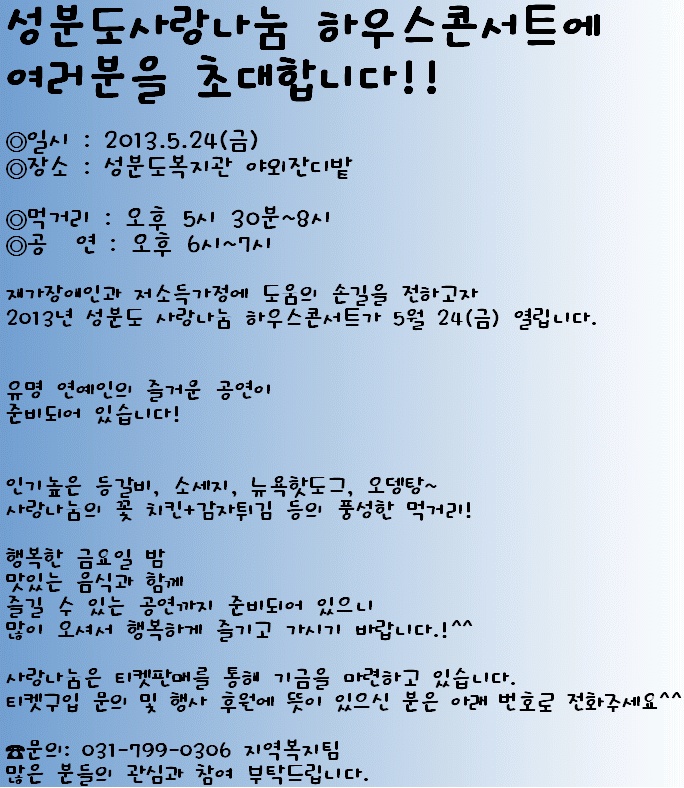 성분도사랑나눔 하우스콘서트에
여러분을 초대합니다!!
◎일시 : 2013.5.24(금)
◎장소 : 성분도복지관 야외잔디밭
◎먹거리 : 오후 5시 30분~8시
◎공 연 : 오후 6시~7시
재가장애인과 저소득가정에 도움의 손길을 전하고자
2013년 성분도 사랑나눔 하우스콘서트가 5월 24(금) 열립니다.
유명 연예인의 즐거운 공연이
준비되어 있습니다!
인기높은 등갈비, 소세지, 뉴욕핫도그, 오뎅탕~
사랑나눔의 꽃 치킨+감자튀김 등의 풍성한 먹거리!
행복한 금요일 밤
맛있는 음식과 함께
즐길 수 있는 공연까지 준비되어 있으니
많이 오셔서 행복하게 즐기고 가시기 바랍니다.!^^
사랑나눔은 티켓판매를 통해 기금을 마련하고 있습니다.
티켓구입 문의 및 행사 후원에 뜻이 있으신 분은 아래 번호로 전화주세요^^
☎문의: 031-799-0306 지역복지팀
많은 분들의 관심과 참여 부탁드립니다.